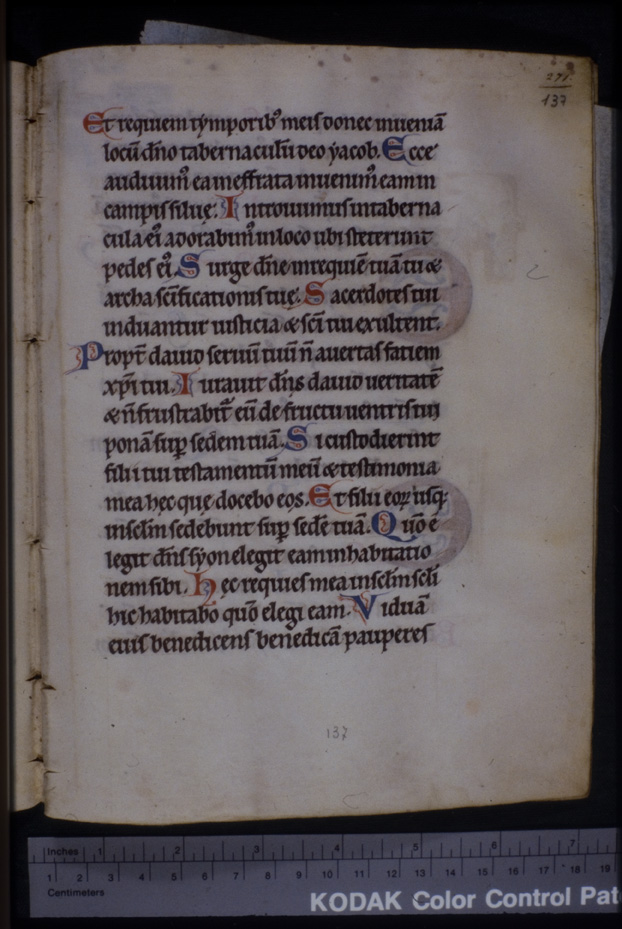 271.
137
Et requiem tẏmporibꝰ meis donec inueniā
locū dn̄o tabernaculū deo ẏacob. Ecce
audiuimꝰ eam effrata inuenimꝰ eam in
campis silue. Introiuimus in taberna
cula eiꝰ adorabimꝰ in loco ubi steterunt
pedes eiꝰ. Surge dn̄e in requiē tuā tu &
archa sc̄ificationis tue. Sacerdotes tui
induantur iusticia & sc̄i tui exultent.
Propt̄ dauid seruū tuū n̄ auertas fatiem
xp̄i tui. Iurauit dn̄s dauid ueritatē
& n̄ frustrabit̄ eū de fructu uentris tui
ponā sup̄ sedem tuā. Si custodierint
filii tui testamentū meū & testimonia
mea hec que docebo eos. Et filii eoꝝ usqꝫ
in sc̄lm sedebunt sup̄ sedē tuā. Qūo e
legit dn̄s sẏon elegit eam in habitatio
nem sibi. Hec requies mea in sc̄lm sc̄li
hic habitabo quō elegi eam. Viduā
eius benedicens benedicā pauperes
137
Inches 1 2 3 4 5 6 7
1 2 3 4 5 6 7 8 9 10 11 12 13 14 15 16 17 18 19
Centimeters
KODAK Color Control Pat